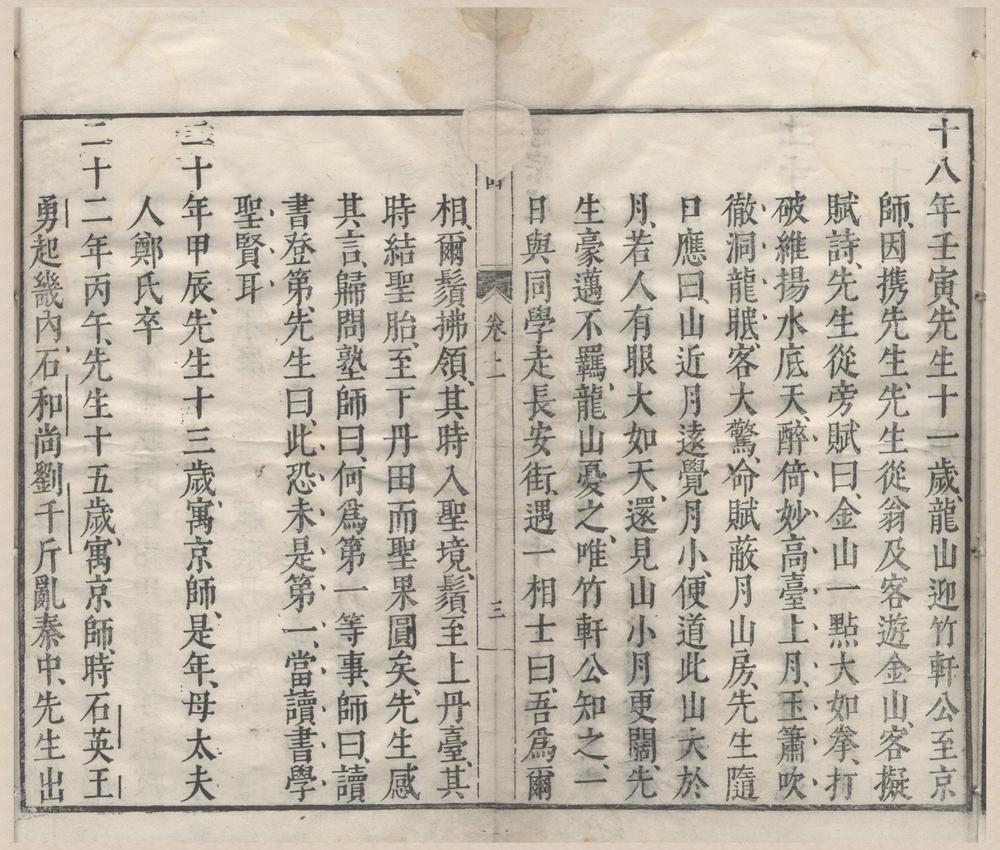 十八年壬寅、先生十一歲、龍山迎竹軒公至京
師、因携先生、先生從翁及客遊金山、客擬
賦詩、先生從旁賦曰、金山一點大如拳、打
破維揚水底天、醉倚妙高臺上月、玉簫吹
徹洞龍眠、客大驚、命賦蔽月山房、先生隨
口應曰、山近月遠覺月小、便道此山大於
月、若人有眼大如天、還見山小月更闊、先
生豪邁不羈、龍山憂之、唯竹軒公知之、一
日與同學走長安街、遇一相士曰、吾爲爾
卷上
三
相、爾鬚拂領、其時入聖境、鬚至上丹臺、其
時結聖胎、至下丹田而聖果圓矣、先生感
其言、歸問塾師曰、何爲第一等事、師曰、讀
書登第、先生曰、此恐未是第一、當讀書學
聖賢耳
二十年甲辰、先生十三歲、寓京師、是年、母太夫
人鄭氏卒
二十二年丙午、先生十五歲、寓京師、時石英王
勇起畿內、石和尚劉千斤亂秦中、先生出